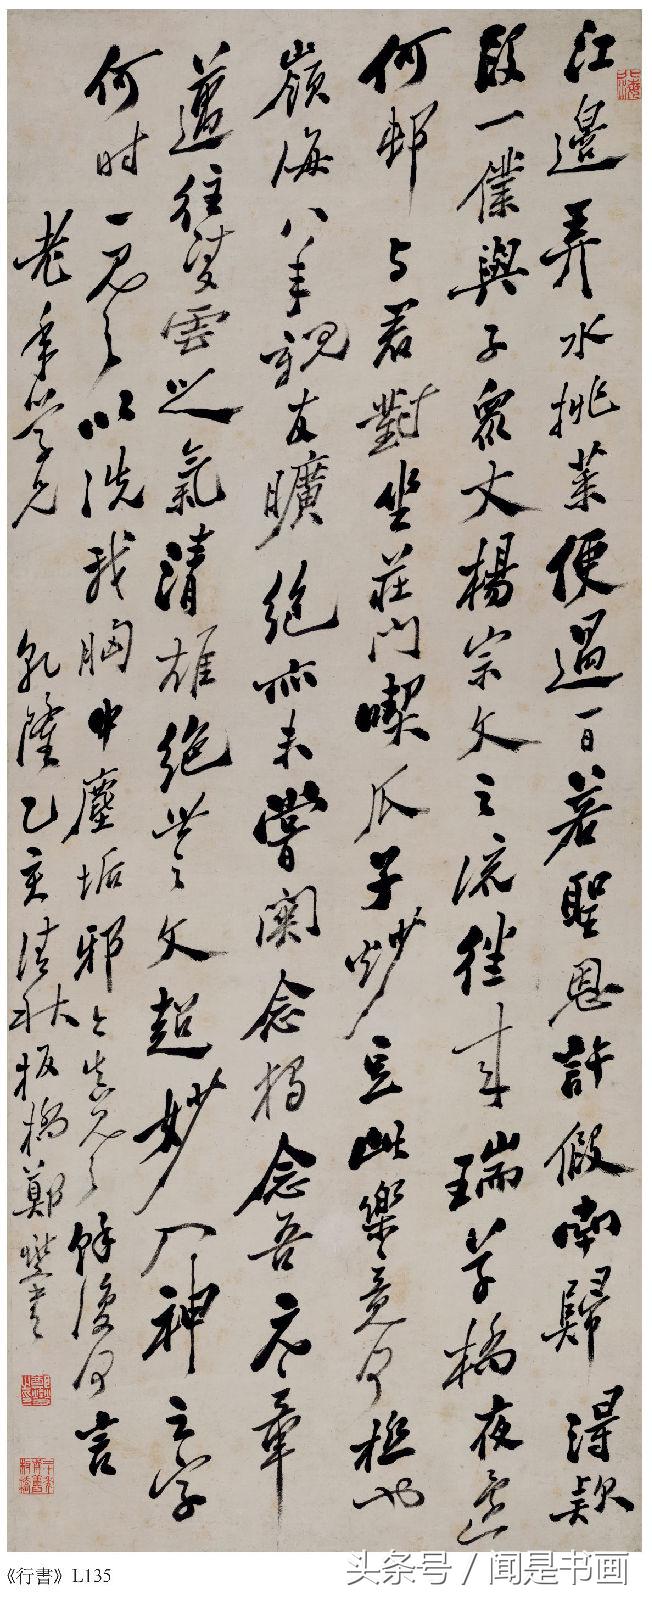 江邊弄水挑菜便過一日若聖恩許假南歸得款
段一僕與子衆丈楊宗文之流往來瑞草橋夜還
何邨与君對坐莊門喫瓜子炒豆此樂竟何極也
嶺海八年親友曠絕亦未嘗闗念獨念吾元章
邁往凌雲之氣清雄絕世之文超妙入神之字
何时一見之以洗我胸中塵垢邪今真見之餘復何言
老年學兄
乾隆乙亥清秋板橋鄭燮書
《行書》L135
头条号 / 闻是书画